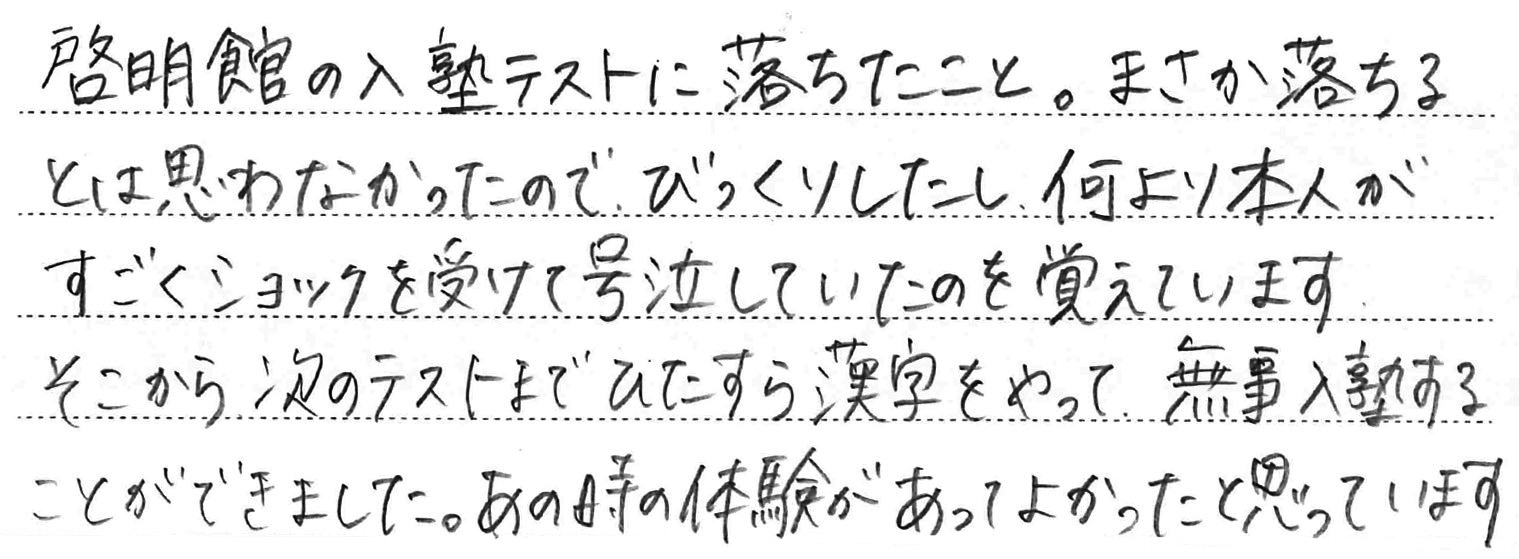 啓明館の入塾テストに落ちたこと。まさか落ちる
とは思わなかったので、びっくりしたし、何より本人が
すごくショックを受けて号泣していたのを覚えています。
そこから、次のテストまでひたすら漢字をやって、無事入塾する
ことができました。あの時の体験があってよかったと思っています